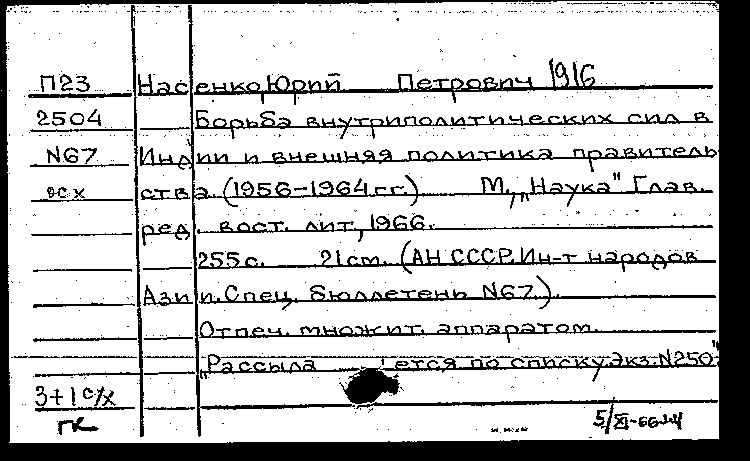 П23 Насенко, Юрий Петрович 1916
2504 Борьба внутриполитических сил в
N67 Индии и внешняя политика правитель
осх ства (1956-1964 гг.) М., „Наука" Глав.
ред. вост. лит, 1966.
255 с. 21 см. (АН СССР. Ин-т народов
Азии. Спец. бюллетень N67.).
Отпеч. множит. аппаратом.
„Рассыла ется по списку. Экз. N250"
3+1 с/х
гк
5/XI-66